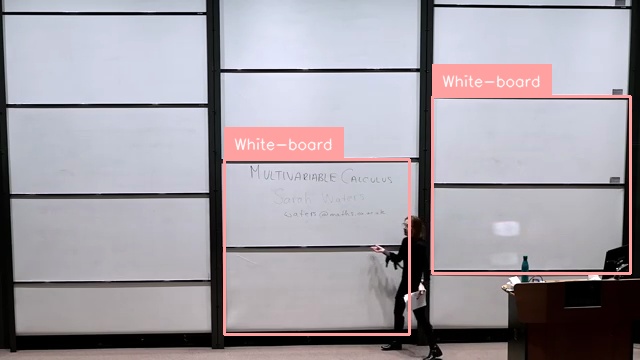 White-board
White-board
MULTIVARIABLE CALCULUS
Sarah Waters
waters@maths.ox.ac.uk